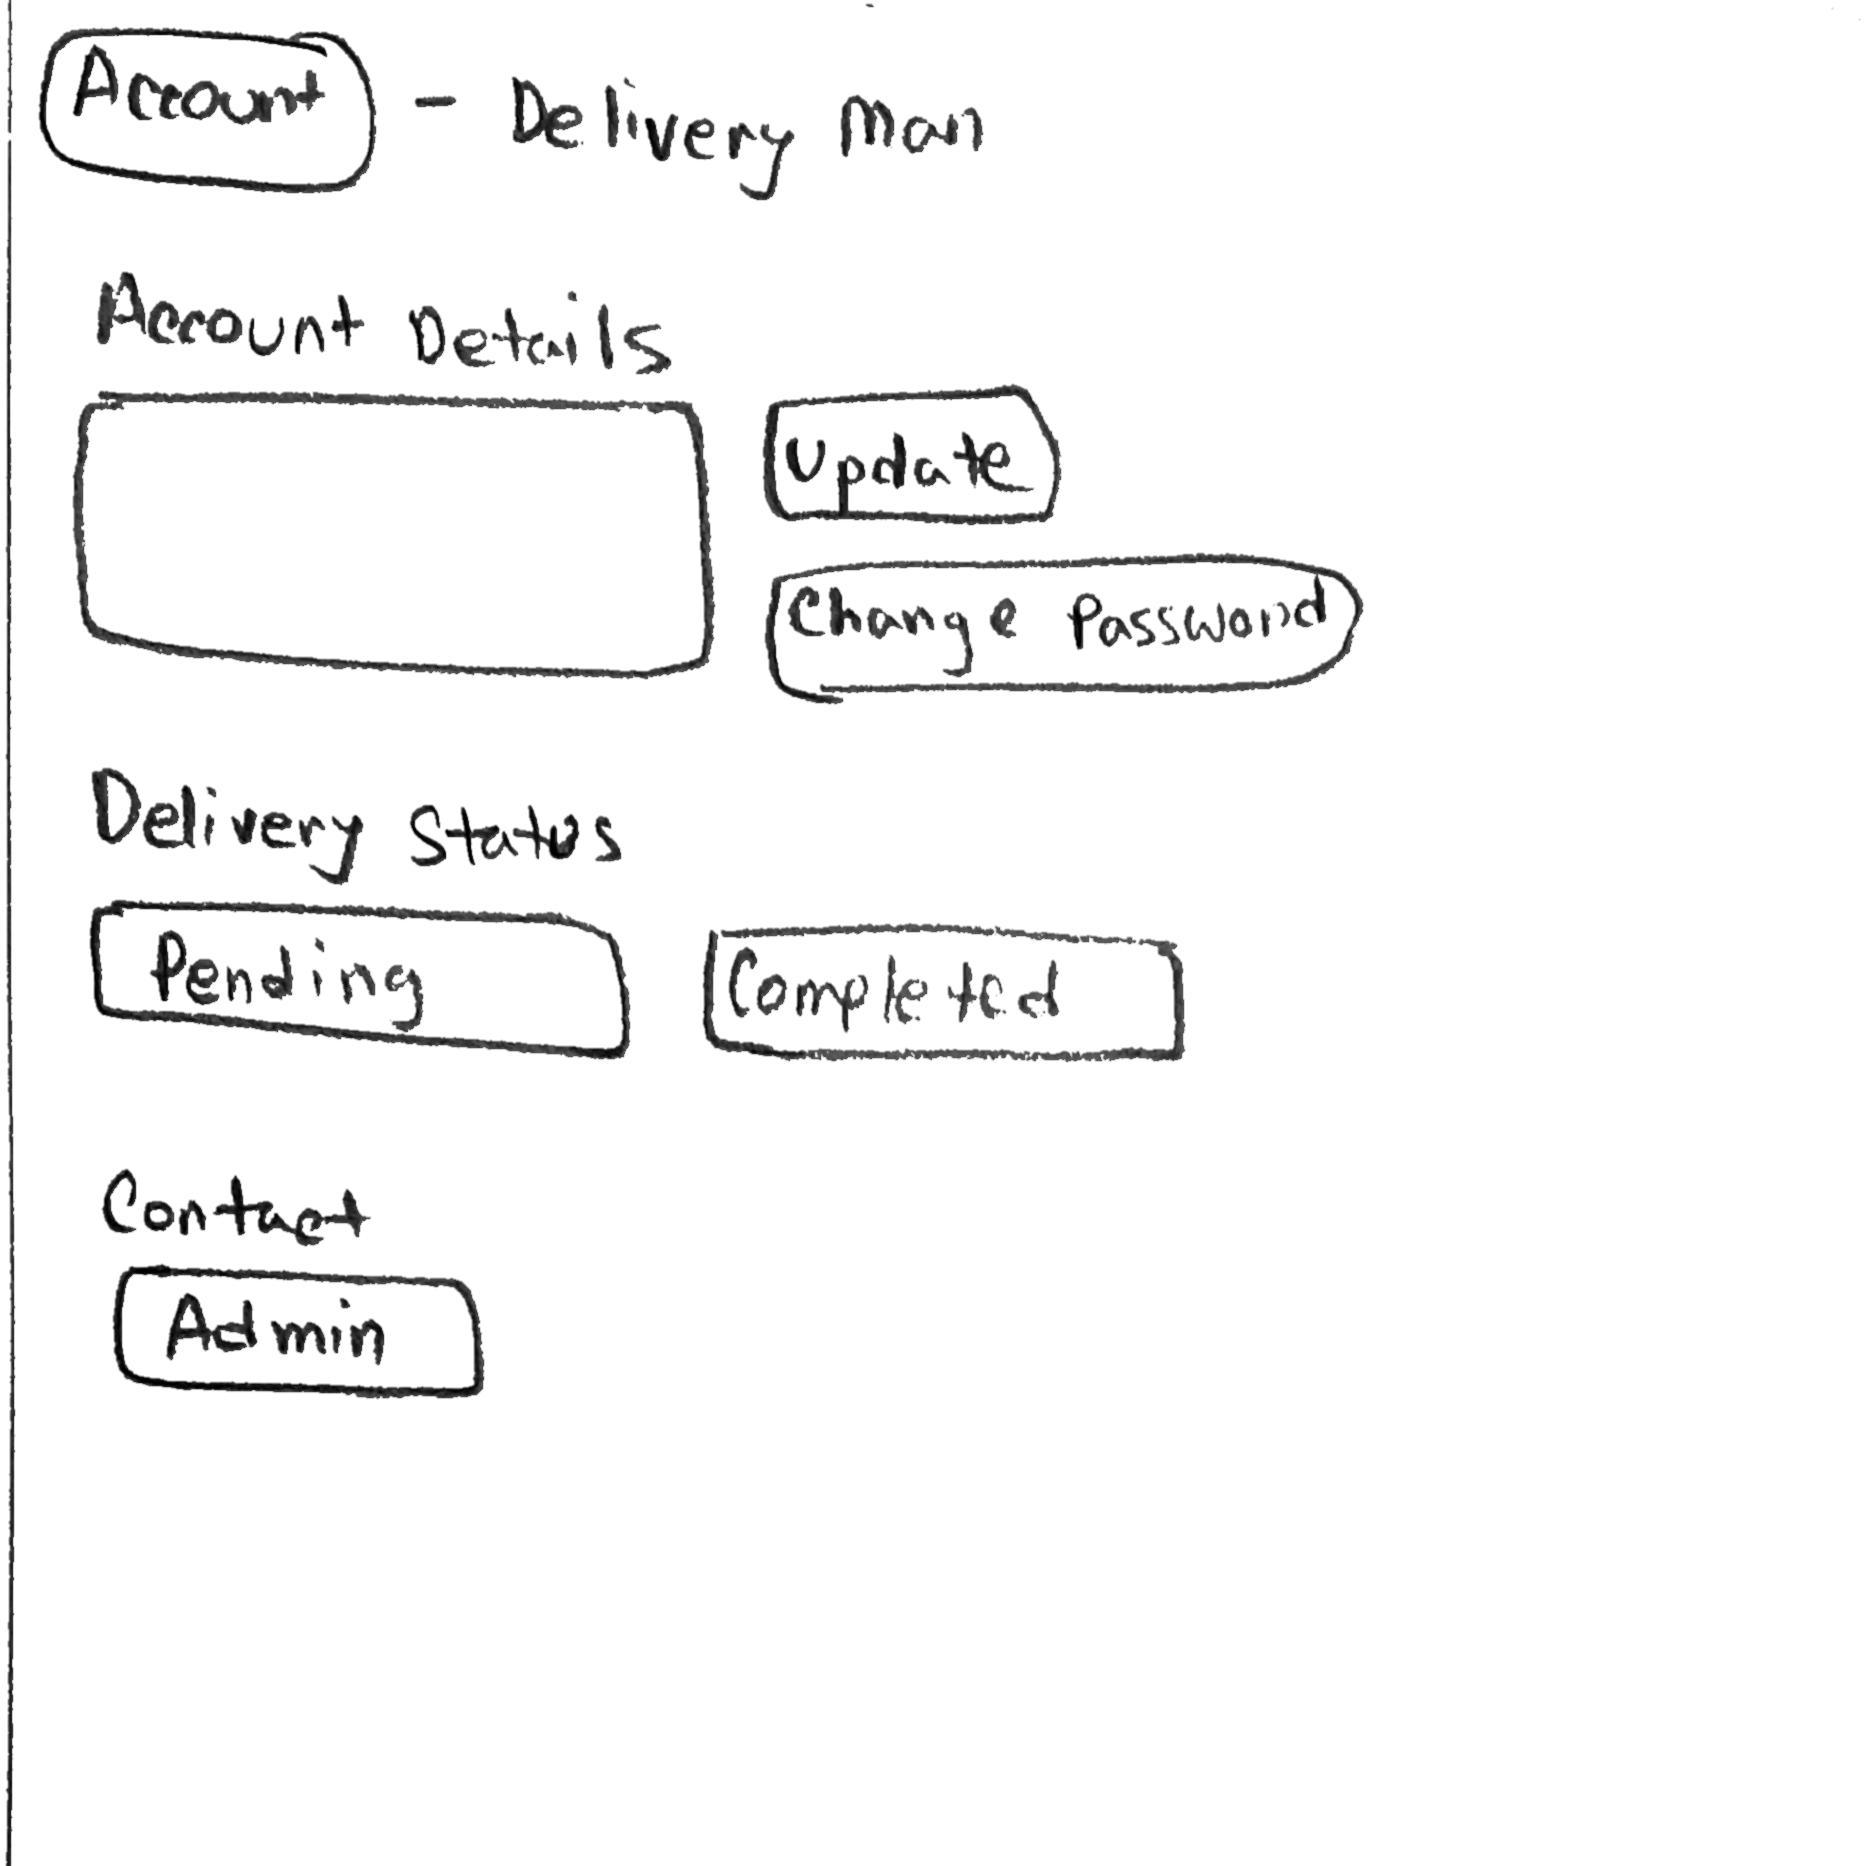 Account - Delivery Man
Account Details
Update
Change Password
Delivery Status
Pending Completed
Contact
Admin